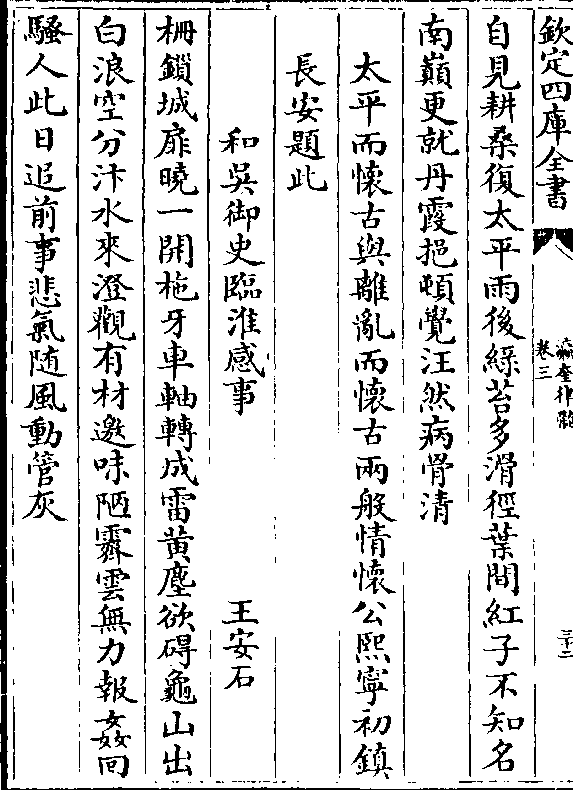 欽定四庫全書
瀛奎律髓
卷三
三十二
自見耕桑復太平雨後綠苔多滑徑葉間紅子不知名
南巔更就丹霞挹頓覺汪然病骨清
太平而懷古與離亂而懷古兩般情懷公熙寧初鎮
長安題此
和吳御史臨淮感事
王安石
柵鎖城扉曉一開柂牙車軸轉成雷黃塵欲碍龜山出
白浪空分汴水來澄觀有材邀味陋霽雲無力報姦回
騷人此日追前事悲氣随風動管灰